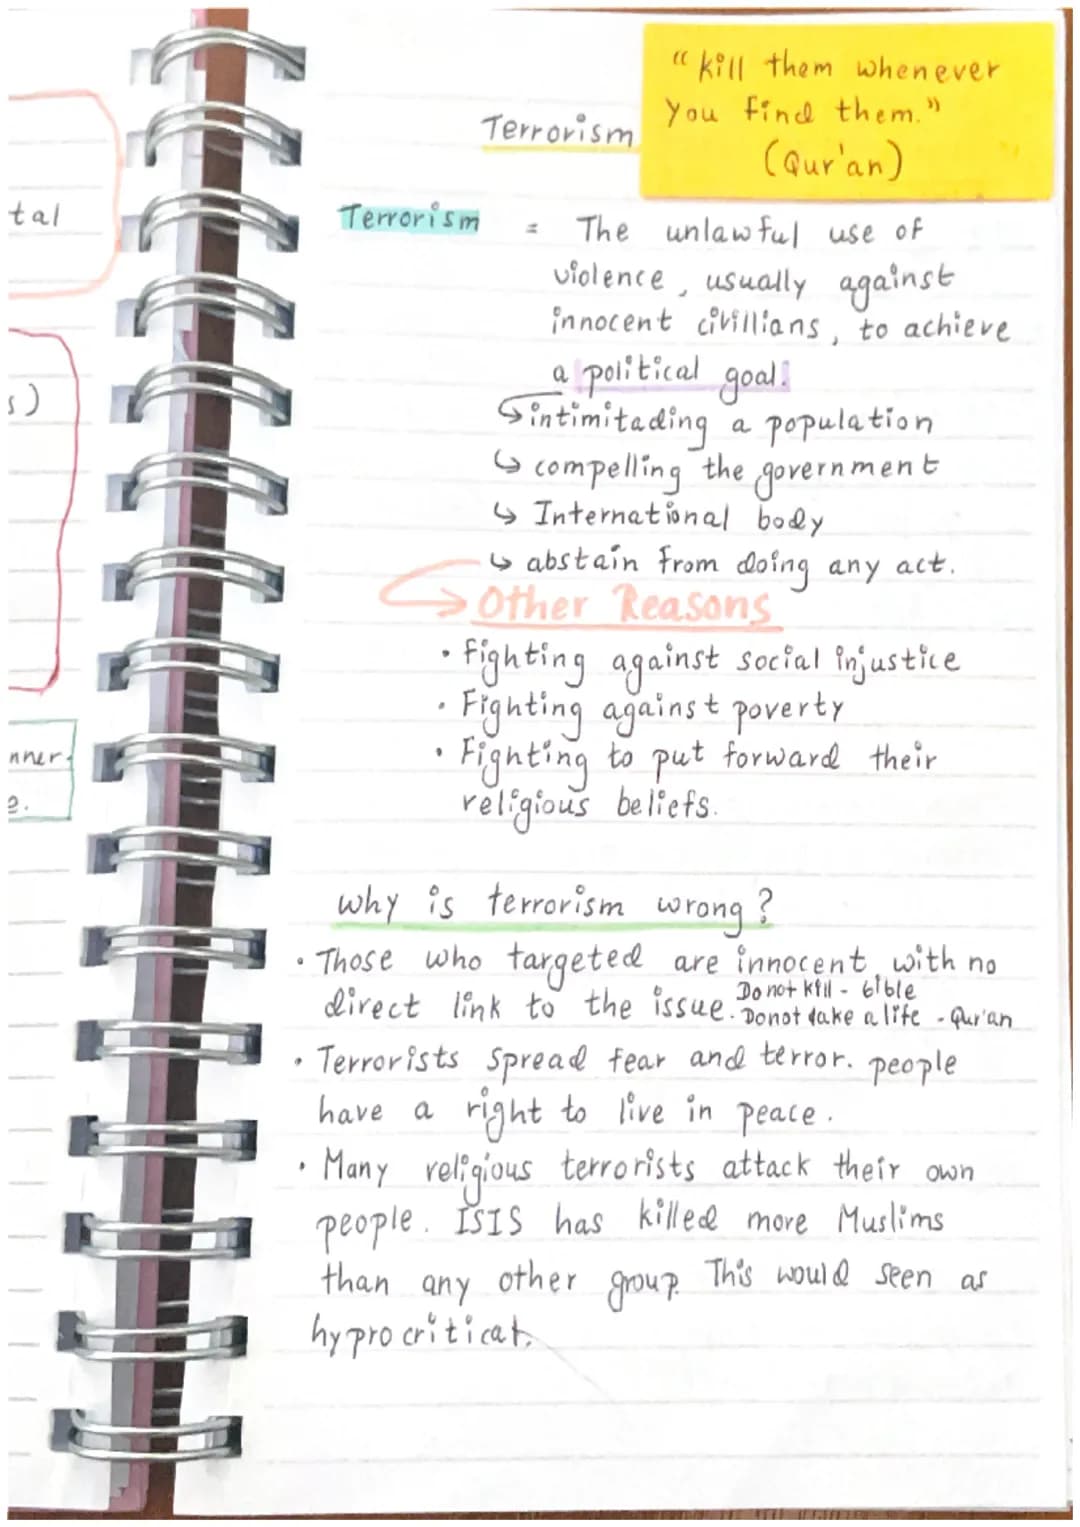 tal
s)
nner-
e.
"kill them whenever
you find them."
(Qur'an)
Terrorism
Terrorism = The unlawful use of
violence, usually against
innocent civillians, to achieve
a political goal.
↳ intimitading a population
↳ compelling the government
↳ International body
↳ abstain from doing any act.
→ Other Reasons
• fighting against social injustice
• Fighting against poverty
• Fighting to put forward their
religious beliefs.
why is terrorism wrong?
• Those who targeted are innocent, with no
direct link to the issue. Do not kill - bible
Do not take a life - Qur'an
• Terrorists spread fear and terror. people
have a right to live in peace.
• Many religious terrorists attack their own
people. ISIS has killed more Muslims
than any other group. This would seen as
hyprocritical.